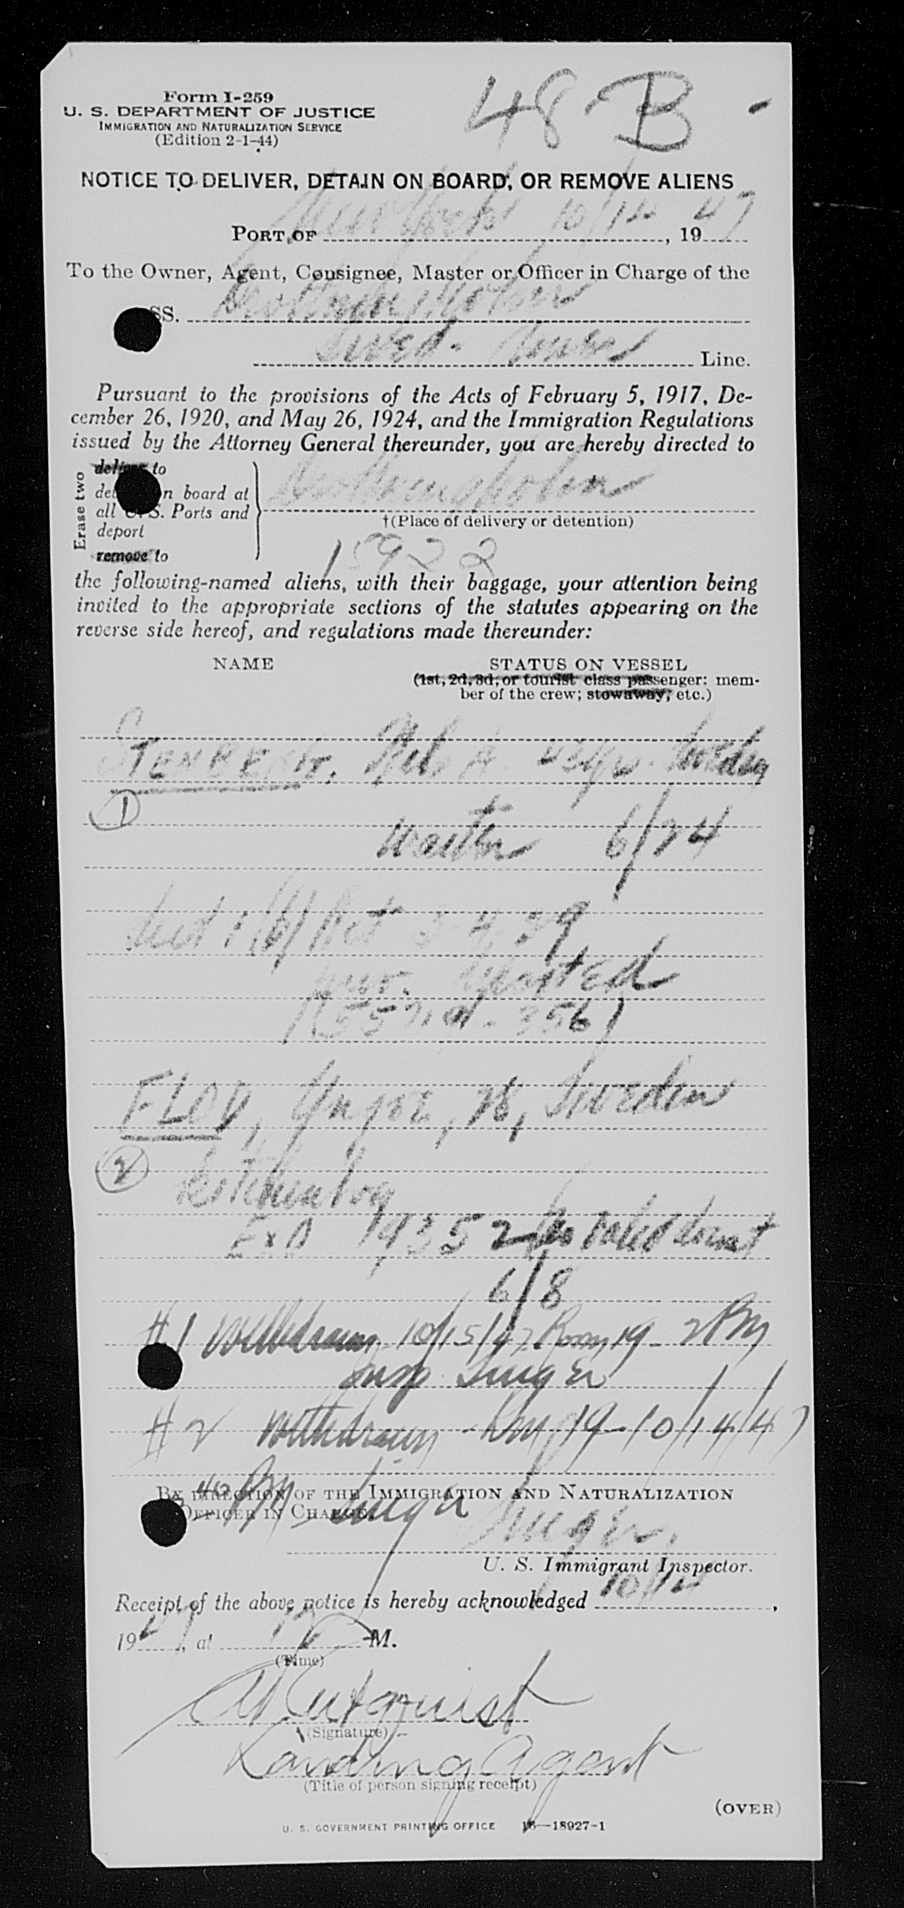 48-B -
Form I-259
U. S. DEPARTMENT OF JUSTICE
IMMIGRATION AND NATURALIZATION SERVICE
(Edition 2-1-44)
NOTICE TO DELIVER, DETAIN ON BOARD, OR REMOVE ALIENS
PORT OF New York 10/14, 1947
To the Owner, Agent, Consignee, Master or Officer in Charge of the
SS. Drottningholm
Swed. Line.
Pursuant to the provisions of the Acts of February 5, 1917, De-
cember 26, 1920, and May 26, 1924, and the Immigration Regulations
issued by the Attorney General thereunder, you are hereby directed to
Erase two
deliver to
on board at
all U.S. Ports and
deport
remove to
Drottningholm
†(Place of delivery or detention)
15922
the following-named aliens, with their baggage, your attention being
invited to the appropriate sections of the statutes appearing on the
reverse side hereof, and regulations made thereunder:
NAME STATUS ON VESSEL
(1st, 2d, 3d, or tourist class passenger: mem-
ber of the crew; stowaway; etc.)
STENBERG, Nils A. Sweden
1
Waiter 6/24
FLOD, Yngve, 28, Sweden
2
Kitchen boy
19352
6/8
#1 Withdrawn 10/15/47 Room 19 - 2 PM
Insp Singer
#2 Withdrawn - Rm 19 - 10/14/47
PM Singer
BY DIRECTION OF THE IMMIGRATION AND NATURALIZATION
OFFICER IN CHARGE
Singer
U. S. Immigrant Inspector.
Receipt of the above notice is hereby acknowledged 10/14,
1947, at 12 M.
(Time)
(Signature)
Landing Agent
(Title of person signing receipt)
(OVER)
U. S. GOVERNMENT PRINTING OFFICE 16—18927-1